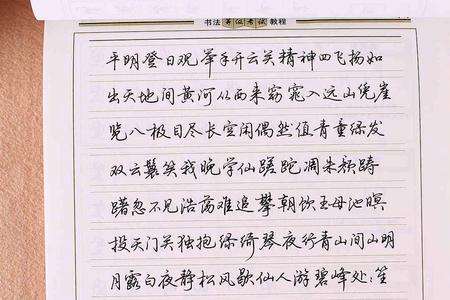 书法等级考试教程
平明登日观举手开云关精神四飞扬如
出天地间黄河从西来窈窕入远山凭崖
览八极目尽长空闲偶然值青童绿发
双云鬟笑我晚学仙蹉跎凋朱颜踌
躇忽不见浩荡难追攀朝饮王母池暝
投天门关独抱绿绮琴夜行青山间山明
月露白夜静松风歇仙人游碧峰处:笙